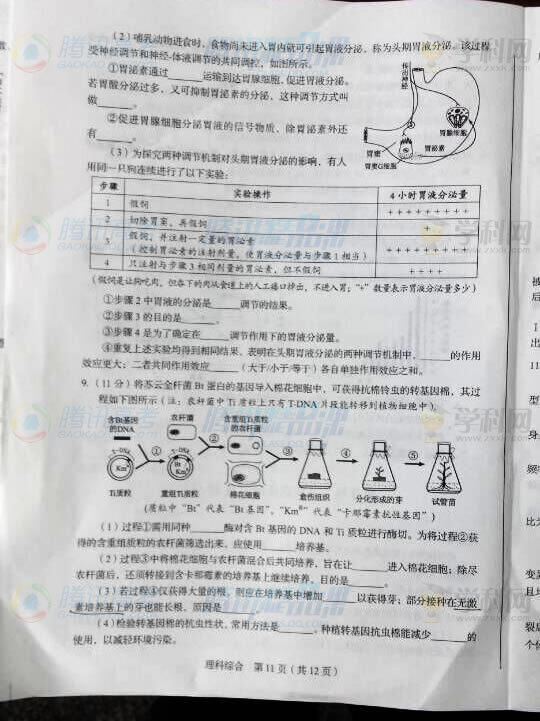 （2）哺乳动物进食时，食物尚未进入胃内就可引起胃液分泌，称为头期胃液分泌。该过程
受神经调节和神经-体液调节的共同调控，如图所示。
①胃泌素通过______运输到达胃腺细胞，促进胃液分泌。
若胃酸分泌过多，又可抑制胃泌素的分泌，这种调节方式叫
做______。
②促进胃腺细胞分泌胃液的信号物质，除胃泌素外还
有______。
传出神经
胃腺细胞
胃泌素
胃窦
胃窦G细胞
（3）为探究两种调节机制对头期胃液分泌的影响，有人
用同一只狗连续进行了以下实验：
步骤 实验操作 4小时胃液分泌量
1 假饲 ++++++++
2 切除胃窦，再假饲 +
3 假饲，并注射一定量的胃泌素
（控制胃泌素的注射剂量，使胃液分泌量与步骤1相当） ++++++++
4 只注射与步骤3相同剂量的胃泌素，但不假饲 ++++
（假饲是让狗吃肉，但吞下的肉从食道上的人工瘘口排出，不进入胃；“+”数量表示胃液分泌量多少）
①步骤2中胃液的分泌是______调节的结果。
②步骤3的目的是______。
③步骤4是为了确定在______调节作用下的胃液分泌量。
④重复上述实验均得到相同结果，表明在头期胃液分泌的两种调节机制中，______的作用
效应更大；二者共同作用效应______（大于/小于/等于）各自单独作用效应之和。
9.（11分）将苏云金杆菌Bt蛋白的基因导入棉花细胞中，可获得抗棉铃虫的转基因棉，其过
程如下图所示（注：农杆菌中Ti质粒上只有T-DNA片段能转移到植物细胞中）。
含Bt基因
的DNA
农杆菌
含重组Ti质粒
的农杆菌
T-DNA
Kmᴿ
T-DNA
Bt
Kmᴿ
① ② ③ ④ ⑤
Ti质粒 重组Ti质粒 棉花细胞 愈伤组织 分化形成的芽 试管苗
（质粒中“Bt”代表“Bt基因”，“Kmᴿ”代表“卡那霉素抗性基因”）
（1）过程①需用同种______酶对含Bt基因的DNA和Ti质粒进行酶切。为将过程②获
得的含重组质粒的农杆菌筛选出来，应使用______培养基。
（2）过程③中将棉花细胞与农杆菌混合后共同培养，旨在让______进入棉花细胞；除尽
农杆菌后，还须转接到含卡那霉素的培养基上继续培养，目的是______。
（3）若过程④仅获得大量的根，则应在培养基中增加______以获得芽；部分接种在无激
素培养基上的芽也能长根，原因是______。
（4）检验转基因棉的抗虫性状，常用方法是______。种植转基因抗虫棉能减少______的
使用，以减轻环境污染。
理科综合 第11页（共12页）